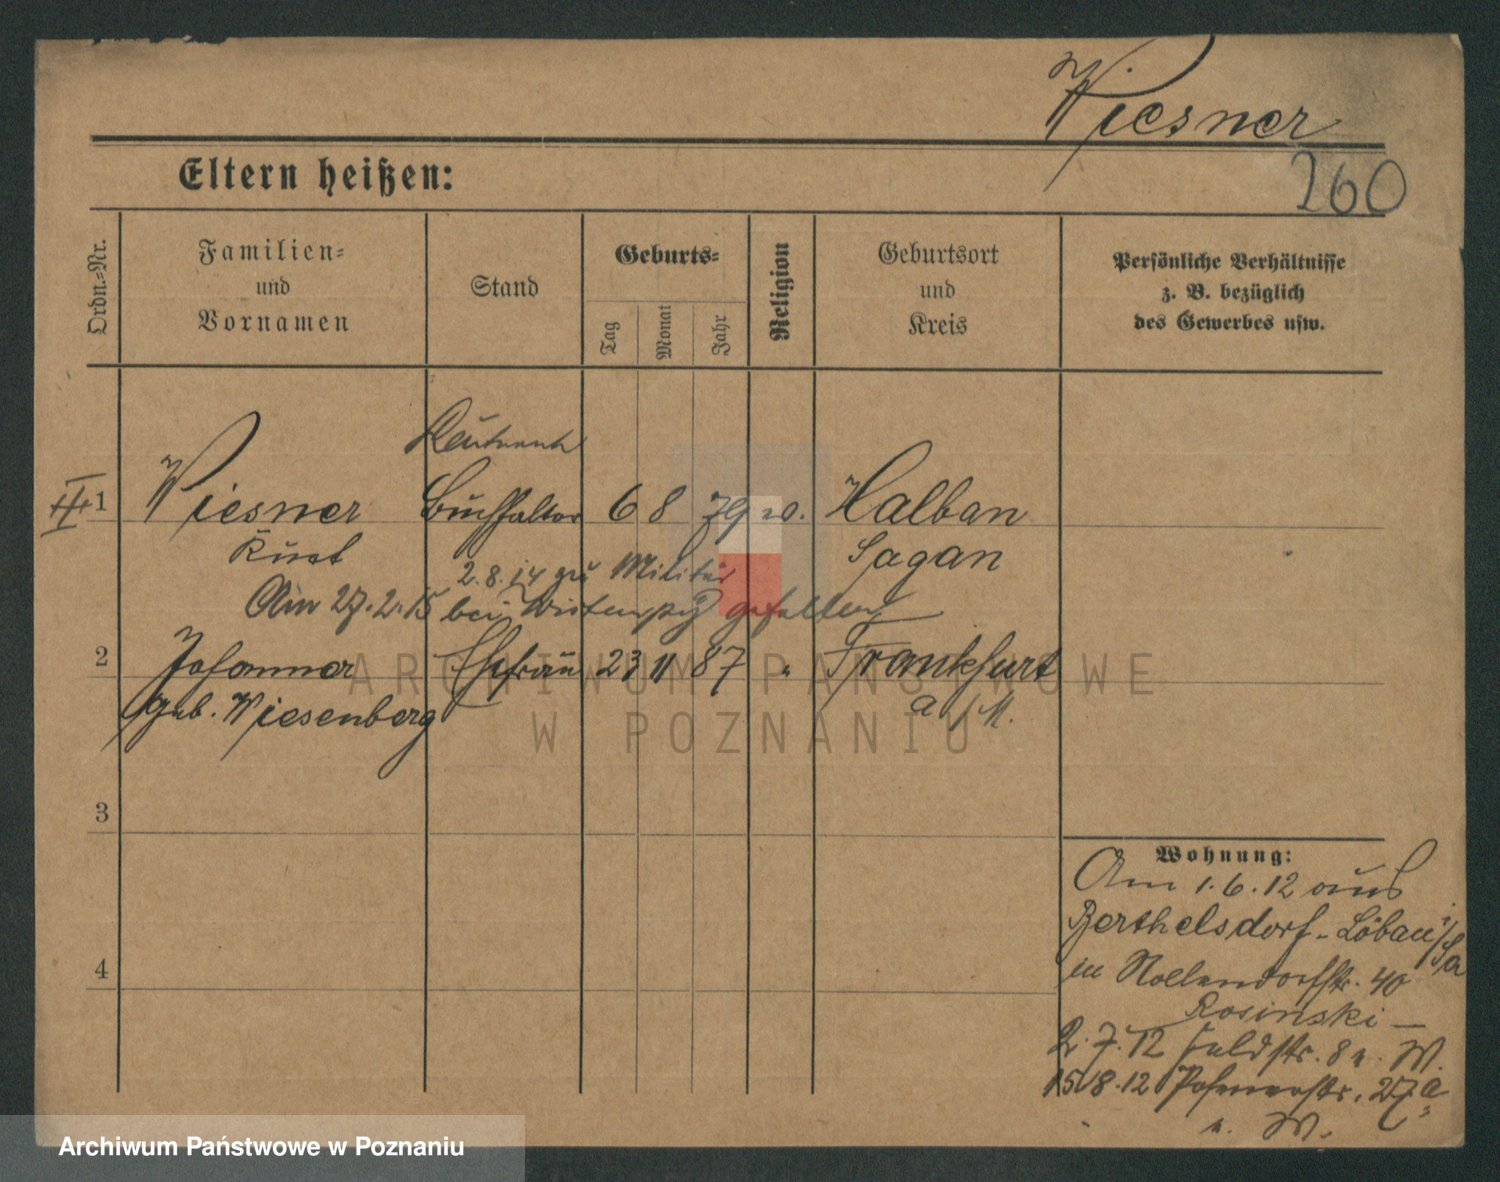 Wiesner
260
Eltern heißen:
Ordn.-Nr.
Familien- und Vornamen
Stand
Geburts-
Tag
Monat
Jahr
Religion
Geburtsort und Kreis
Persönliche Verhältnisse z. B. bezüglich des Gewerbes usw.
Leutnant
III 1 Wiesner Buchhalter 6 8 79 Halban
Kurt Sagan
2.8.14 zu Militär
Am 27.2.15 bei gefallen
2 Johanna Ehefrau 23 11 87 " Frankfurt
geb. Wiesenberg a/M.
3
4
Wohnung:
Am 1.6.12 aus
Berthelsdorf-Löbau i/Sa
in Nollendorfstr. 40
Rosinski
2.7.12 Feldstr. 8 W.
15/8.12 Posenerstr. 27a
W.
ARCHIWUM PAŃSTWOWE
W POZNANIU
Archiwum Państwowe w Poznaniu